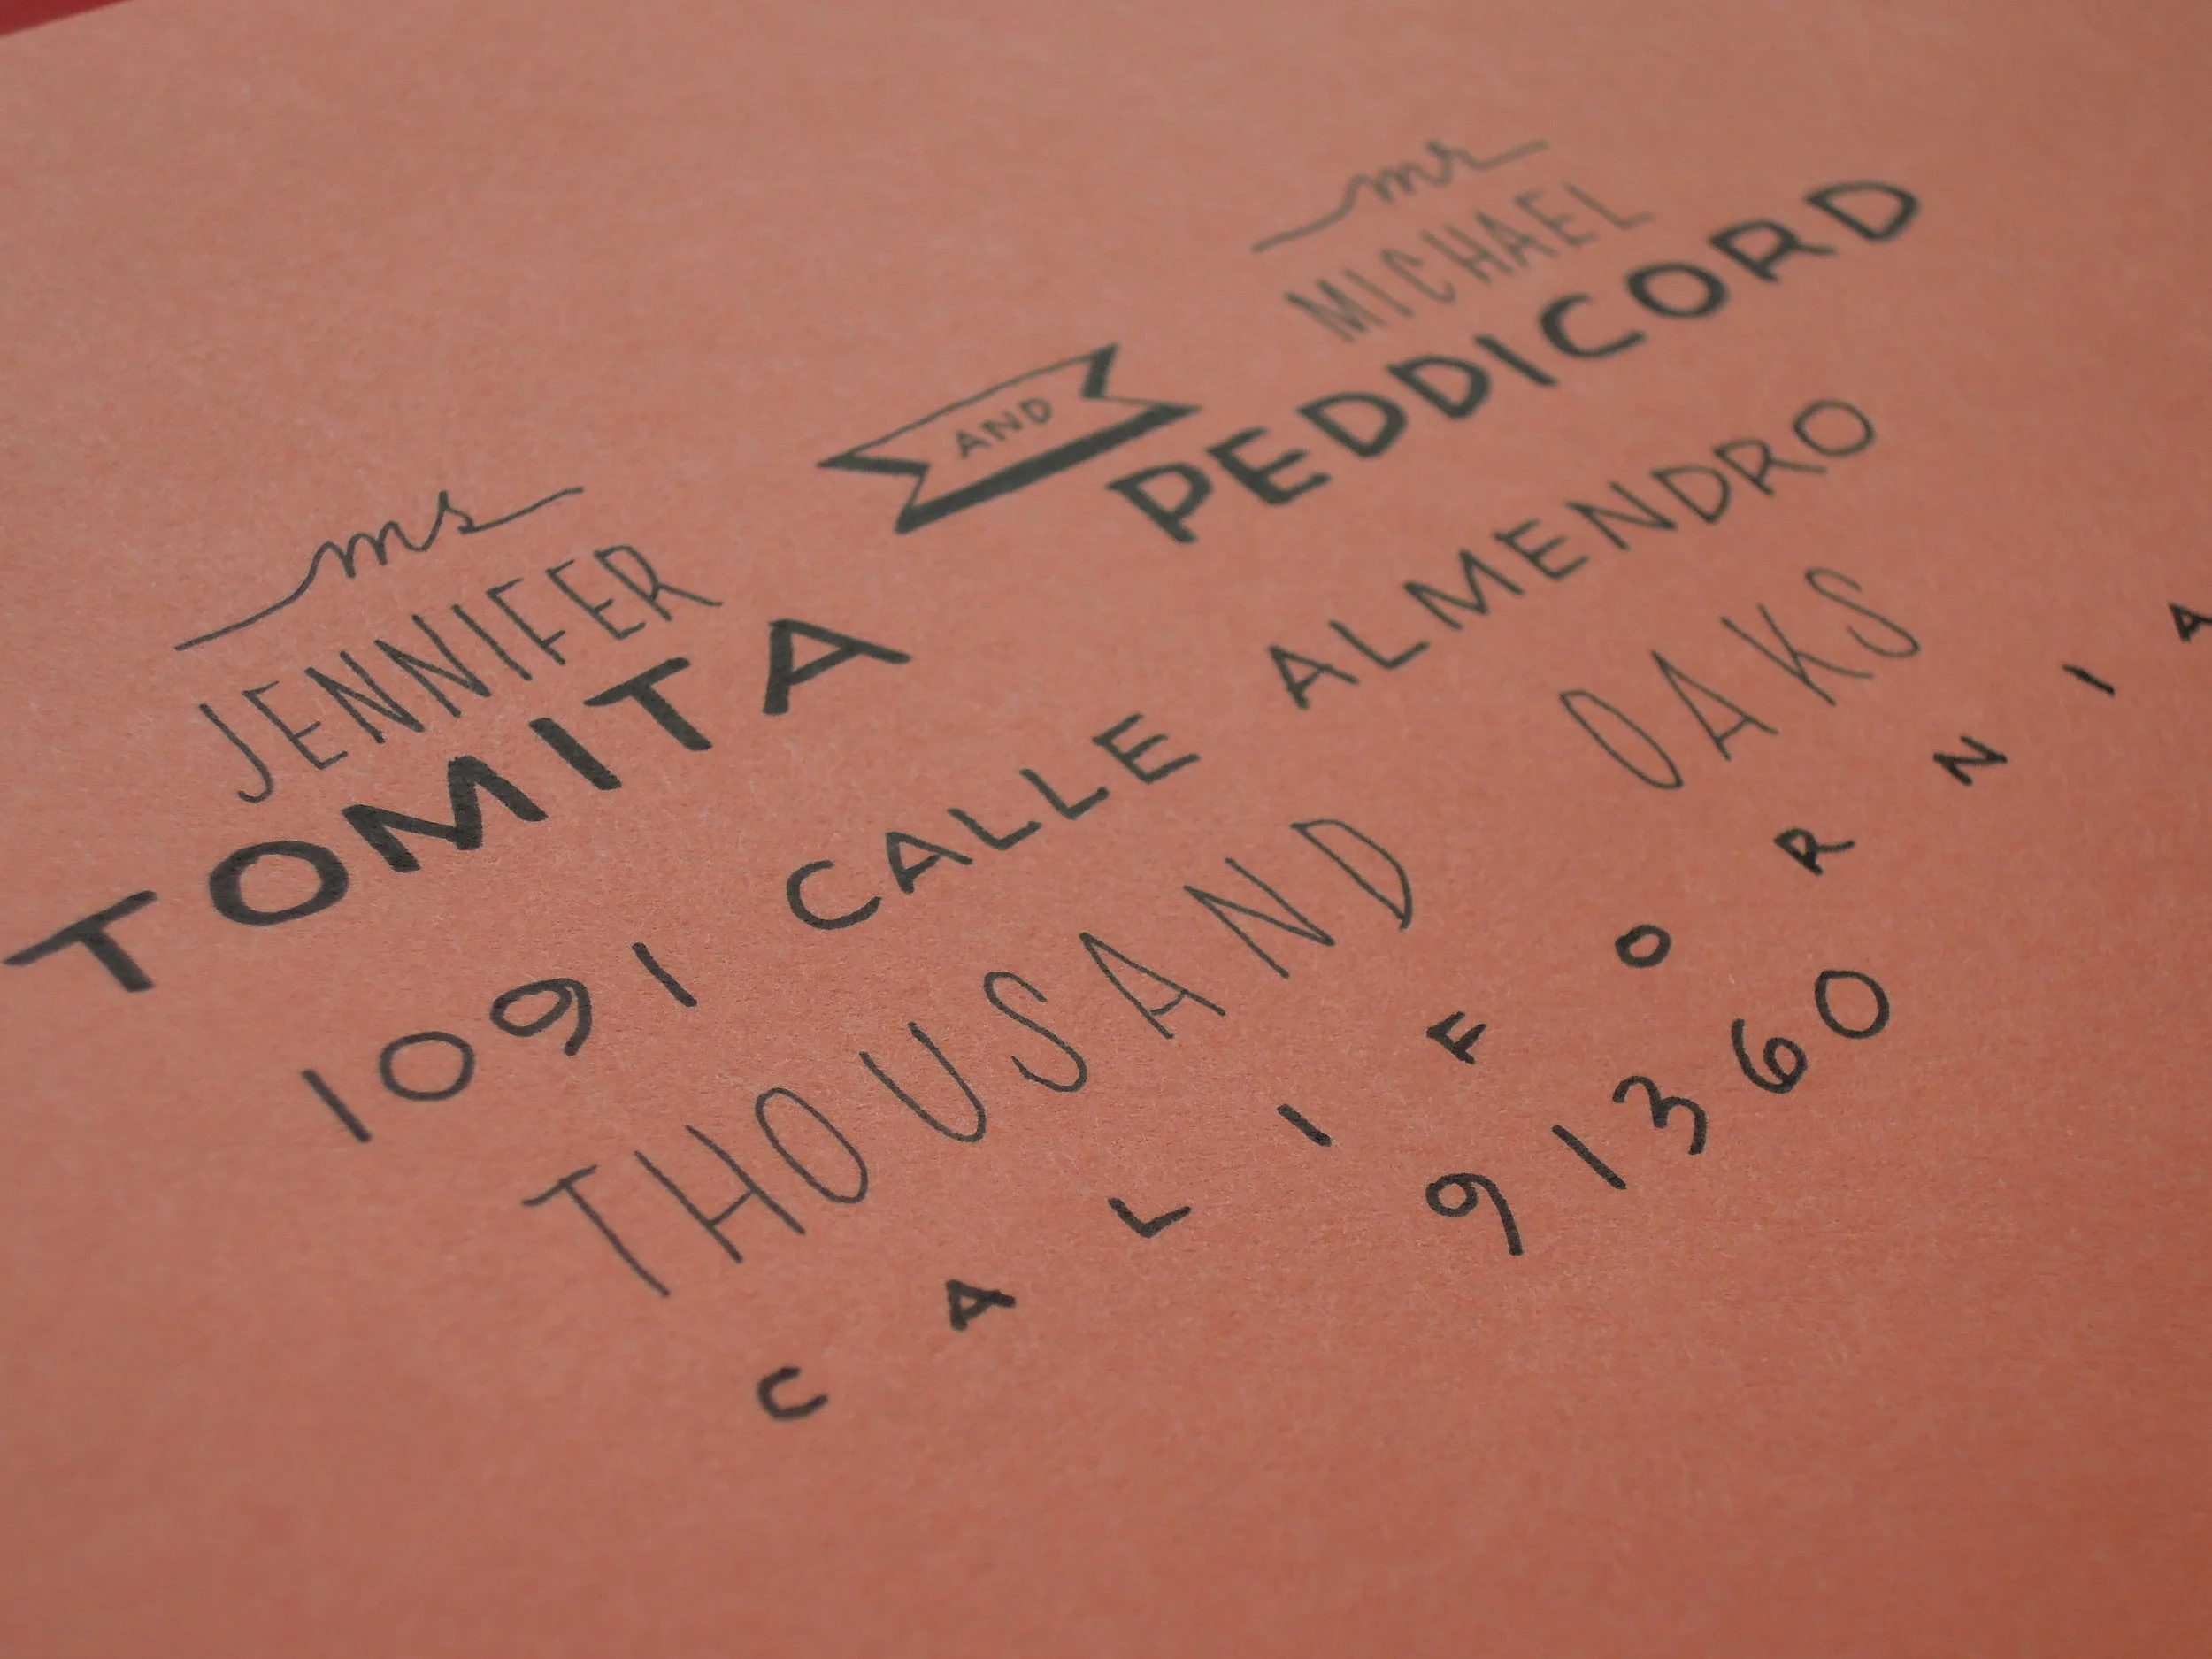 ms
JENNIFER
TOMITA
AND
mr
MICHAEL
PEDDICORD
1091 CALLE ALMENDRO
THOUSAND OAKS
CALIFORNIA
91360